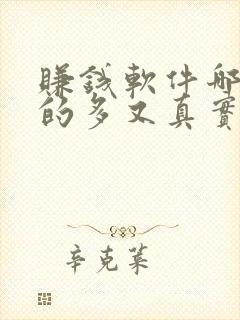 賺錢軟件哪
的多又真實
辛克萊